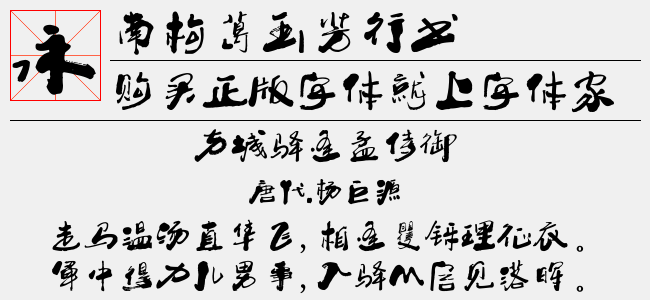 永
南构行书
购买正版字体就上字体家
方城驿逢孟侍御
唐代.杨巨源
走马温汤直隼飞,相逢矍铄理征衣。
军中得力儿男事,入驿从容见落晖。